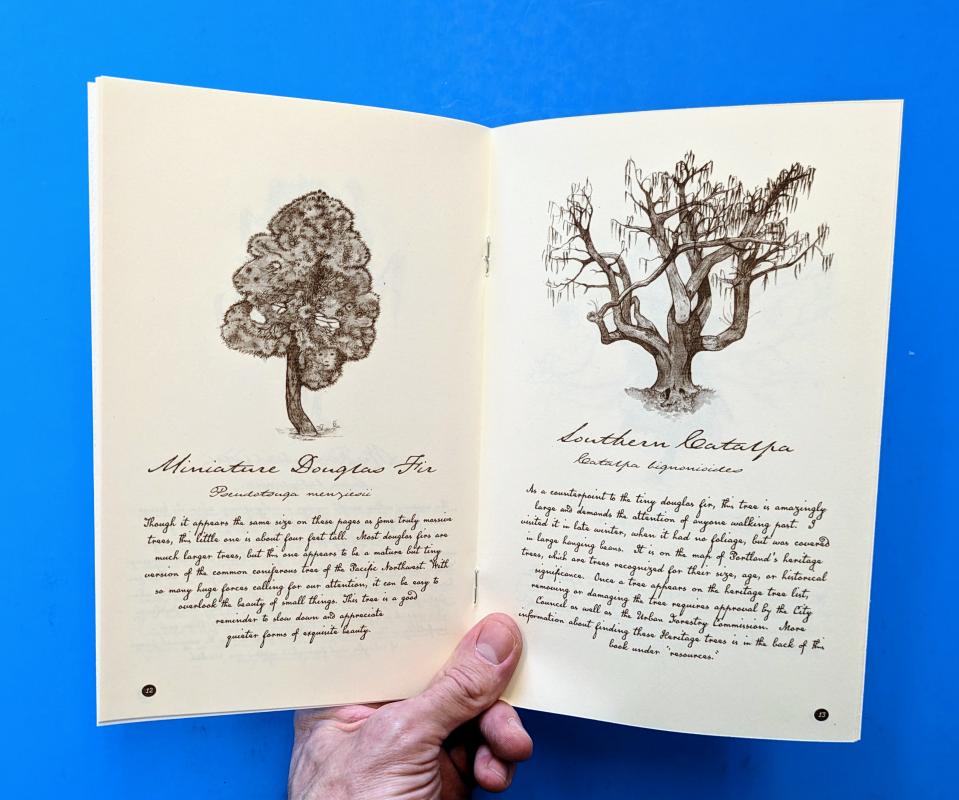 Miniature Douglas Fir
Pseudotsuga menziesii
Though it appears the same size on these pages as some truly massive
trees, this little one is about four feet tall. Most douglas firs are
much larger trees, but this one appears to be a mature but tiny
version of the common coniferous tree of the Pacific Northwest. With
so many huge forces calling for our attention, it can be easy to
overlook the beauty of small things. This tree is a good
reminder to slow down and appreciate
quieter forms of exquisite beauty.
12
Southern Catalpa
Catalpa bignonioides
As a counterpoint to the tiny douglas fir, this tree is amazingly
large and demands the attention of anyone walking past. I
visited it in late winter, when it had no foliage, but was covered
in large hanging beans. It is on the map of Portland's heritage
trees, which are trees recognized for their size, age, or historical
significance. Once a tree appears on the heritage tree list,
removing or damaging the tree requires approval by the City
Council as well as the Urban Forestry Commission. More
information about finding these Heritage trees is in the back of this
book under "resources."
13